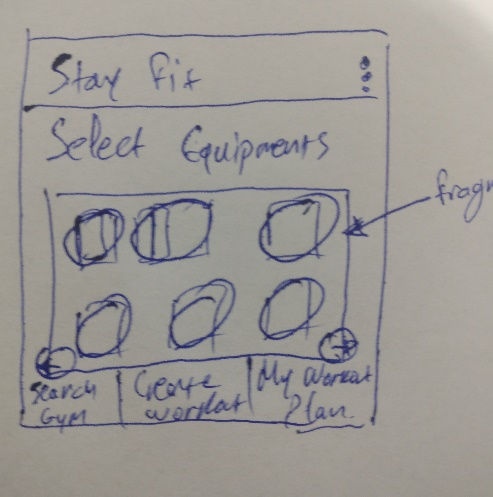 Stay Fit
Select Equipments
fragm
Search
Gym
Create
workout
My Workout
Plan.